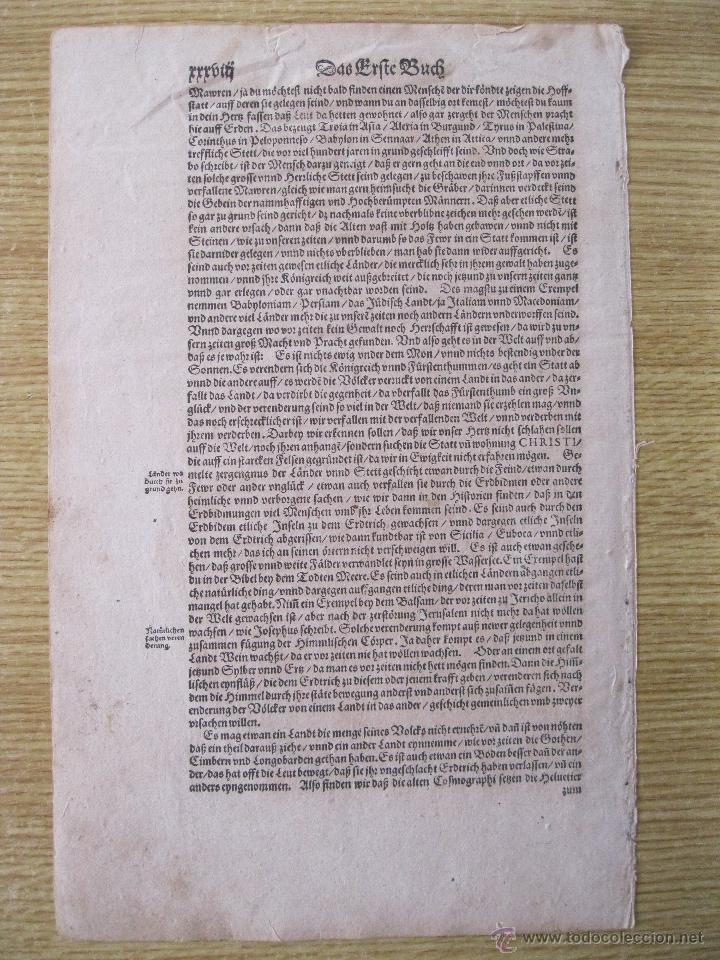 xxxviij Das Erste Buch
Mawren / ja du möchtest nicht bald finden einen Menschē der dir köndte zeigen die Hoff-
statt / auff deren sie gelegen seind / vnd wann du an dasselbig ort kemest / möchtest du kaum
in dein Hertz fassen daß Leut da hetten gewohnet / also gar zergeht der Menschen pracht
hie auff Erden. Das bezeugt Troia in Asia / Alexia in Burgund / Tyrus in Palestina /
Corinthus in Peloponneso / Babylon in Sennaar / Athen in Attica / vnnd andere mehr
treffliche Stett / die vor viel hundert jaren in grund geschleifft seind. Vnd doch wie Stra-
bo schreibt / ist der Mensch darzu geneigt / daß er gern geht an die end vnnd ort / da vor zei-
ten solche grosse vnnd Herrliche Stett seind gelegen / zu beschawen jhre Fußstapffen vnnd
verfallene Mawren / gleich wie man gern heimsucht die Gräber / darinnen verdeckt seind
die Gebein der nammhafftigen vnd Hochberümpten Männern. Daß aber etliche Stett
so gar zu grund seind gericht / dz nachmals keine vberblibne zeichen mehr gesehen werdē / ist
kein andere vrsach / dann daß die Alten vast mit Holtz haben gebawen / vnnd nicht mit
Steinen / wie zu vnseren zeiten / vnnd darumb so das Fewr in ein Statt kommen ist / ist
sie darnider gelegen / vnnd nichts vberblieben / man hab sie dann wider auffgericht. Es
seind auch vor zeiten gewesen etliche Länder / die mercklich sehr in jhrem gewalt haben zuge-
nommen / vnnd jhre Königreich weit außgebreitet / die noch jetzund zu vnsern zeiten gantz
vnnd gar erlegen / oder gar vnachtbar worden seind. Des magstu zu einem Exempel
nemmen Babyloniam / Persiam / das Jüdisch Landt / ja Italiam vnnd Macedoniam /
vnd andere viel Länder mehr die zu vnserē zeiten noch andern Ländern vnderworffen seind.
Vnnd dargegen wo vor zeiten kein Gewalt noch Herrschafft ist gewesen / da wird zu vn-
sern zeiten groß Macht vnd Pracht gefunden. Vnd also geht es in der Welt auff vnd ab /
daß es je wahr ist: Es ist nichts ewig vnder dem Mon / vnnd nichts bestendig vnder der
Sonnen. Es verendern sich die Königreich vnnd Fürstenthummen / es geht ein Statt ab
vnnd die andere auff / es werdē die Völcker verruckt von einem Landt in das ander / da zer-
fallt das Landt / da verdirbt die gegenheit / da vberfallt das Fürstenthumb ein groß Vn-
glück / vnd der verenderung seind so viel in der Welt / daß niemand sie erzehlen mag / vnnd
das noch erschrecklicher ist / wir verfallen mit der verfallenden Welt / vnnd verderben mit
jhrem verderben. Darbey wir erkennen sollen / daß wir vnser Hertz nicht schlahen sollen
auff die Welt / noch jhren anhangē / sondern suchen die Statt vñ wohnung CHRISTI /
die auff ein starcken Felsen gegründet ist / da wir in Ewigkeit nicht erfahren mögen. Ge-
melte zergengnus der Länder vnnd Stett geschicht etwan durch die Feind / etwan durch
Fewr oder ander vnglück / etwan auch verfallen sie durch die Erdbidmen oder andere
heimliche vnnd verborgene sachen / wie wir dann in den Historien finden / daß in den
Erdbidmungen viel Menschen vmb jhr Leben kommen seind. Es seind auch durch den
Erdbidem etliche Inseln zu dem Erdtrich gewachsen / vnnd dargegen etliche Inseln
von dem Erdtrich abgerissen / wie dann kundtbar ist von Sicilia / Euboea / vnnd etli-
chen mehr / das ich an seinen örtern nicht verschweigen will. Es ist auch etwan gesche-
hen / daß grosse vnnd weite Fälder verwandlet seyn in grosse Wasserset. Ein Exempel hast
du in der Bibel bey dem Todten Meere. Es seind auch in etlichen Ländern abgangen etli-
che natürliche ding / vnnd dargegen auffgangen etliche ding / deren man vor zeiten daselbst
mangel hat gehabt. Nim̃ ein Exempel bey dem Balsam / der vor zeiten zu Jericho allein in
der Welt gewachsen ist / aber nach der zerstörung Jerusalem nicht mehr da hat wöllen
wachsen / wie Josephus schreibt. Solche verenderung kompt auß newer gelegenheit vnnd
zusammen fügung der Himmlischen Cörper. Ja daher kompt es / daß jetzund in einem
Landt Wein wachßt / da er vor zeiten nie hat wöllen wachsen. Oder an einem ort gefalt
jetzund Sylber vnnd Ertz / da man es vor zeiten nicht hett mögen finden. Dann die Him̃-
lischen eynflüß / die dem Erdtrich zu diesem oder jenem krafft geben / verenderen sich nach
dem die Himmel durch jhre stäte bewegung anderst vnd anderst sich zusam̃en fügen. Ver-
enderung der Völcker von einem Landt in das ander / geschicht gemeinlichen vmb zweyer
vrsachen willen.
Es mag etwan ein Landt die menge seines Volcks nicht ernehrē / vñ dañ ist von nöhten
daß ein theil darauß ziehe / vnnd ein ander Landt eynnemme / wie vor zeiten die Gothen /
Cimbern vnd Longobarden gethan haben. Es ist auch etwan ein Boden besser dañ der an-
der / das hat offt die Leut bewegt / daß sie jhr vngeschlacht Erdtrich haben verlassen / vñ ein
anders eyngenommen. Also finden wir daß die alten Cosmographi setzen die Heluetier
zum
Länder wo
durch sie zu
grund gehn.
Natürlichen
sachen veren
derung.
www.todocoleccion.net